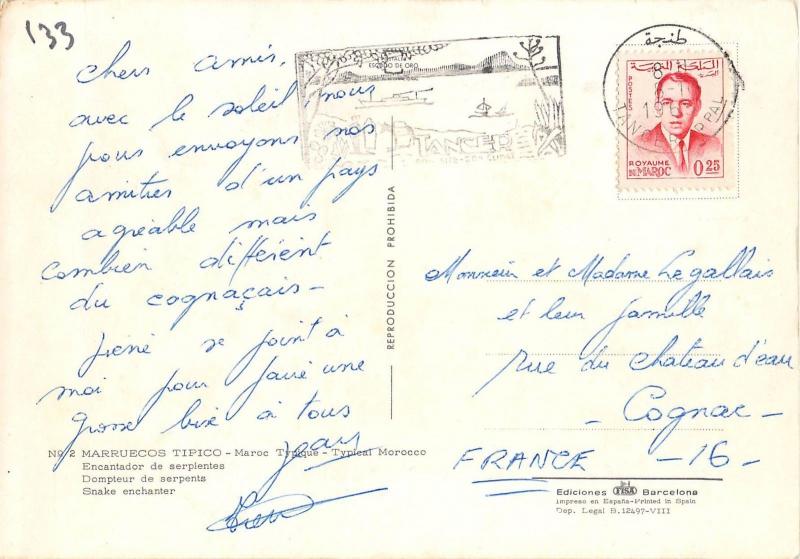 133
Chers amis,
avec le soleil, nous
vous envoyons nos
amitiés d'un pays
agréable mais
combien différent
du cognaçais -
René se joint à
moi pour faire une
grosse bise à tous
Nº 2 MARRUECOS TIPICO - Maroc Typique - Typical Morocco
Encantador de serpientes
Dompteur de serpents
Snake enchanter
REPRODUCCION PROHIBIDA
TANGER
طنجة
المملكة المغربية
POSTES
ROYAUME
DU MAROC
0.25
Monsieur et Madame Legallais
et leur famille
rue du chateau d'eau
- Cognac -
FRANCE - 16 -
Ediciones FISA Barcelona
Impreso en España-Printed in Spain
Dep. Legal B. 12497-VIII